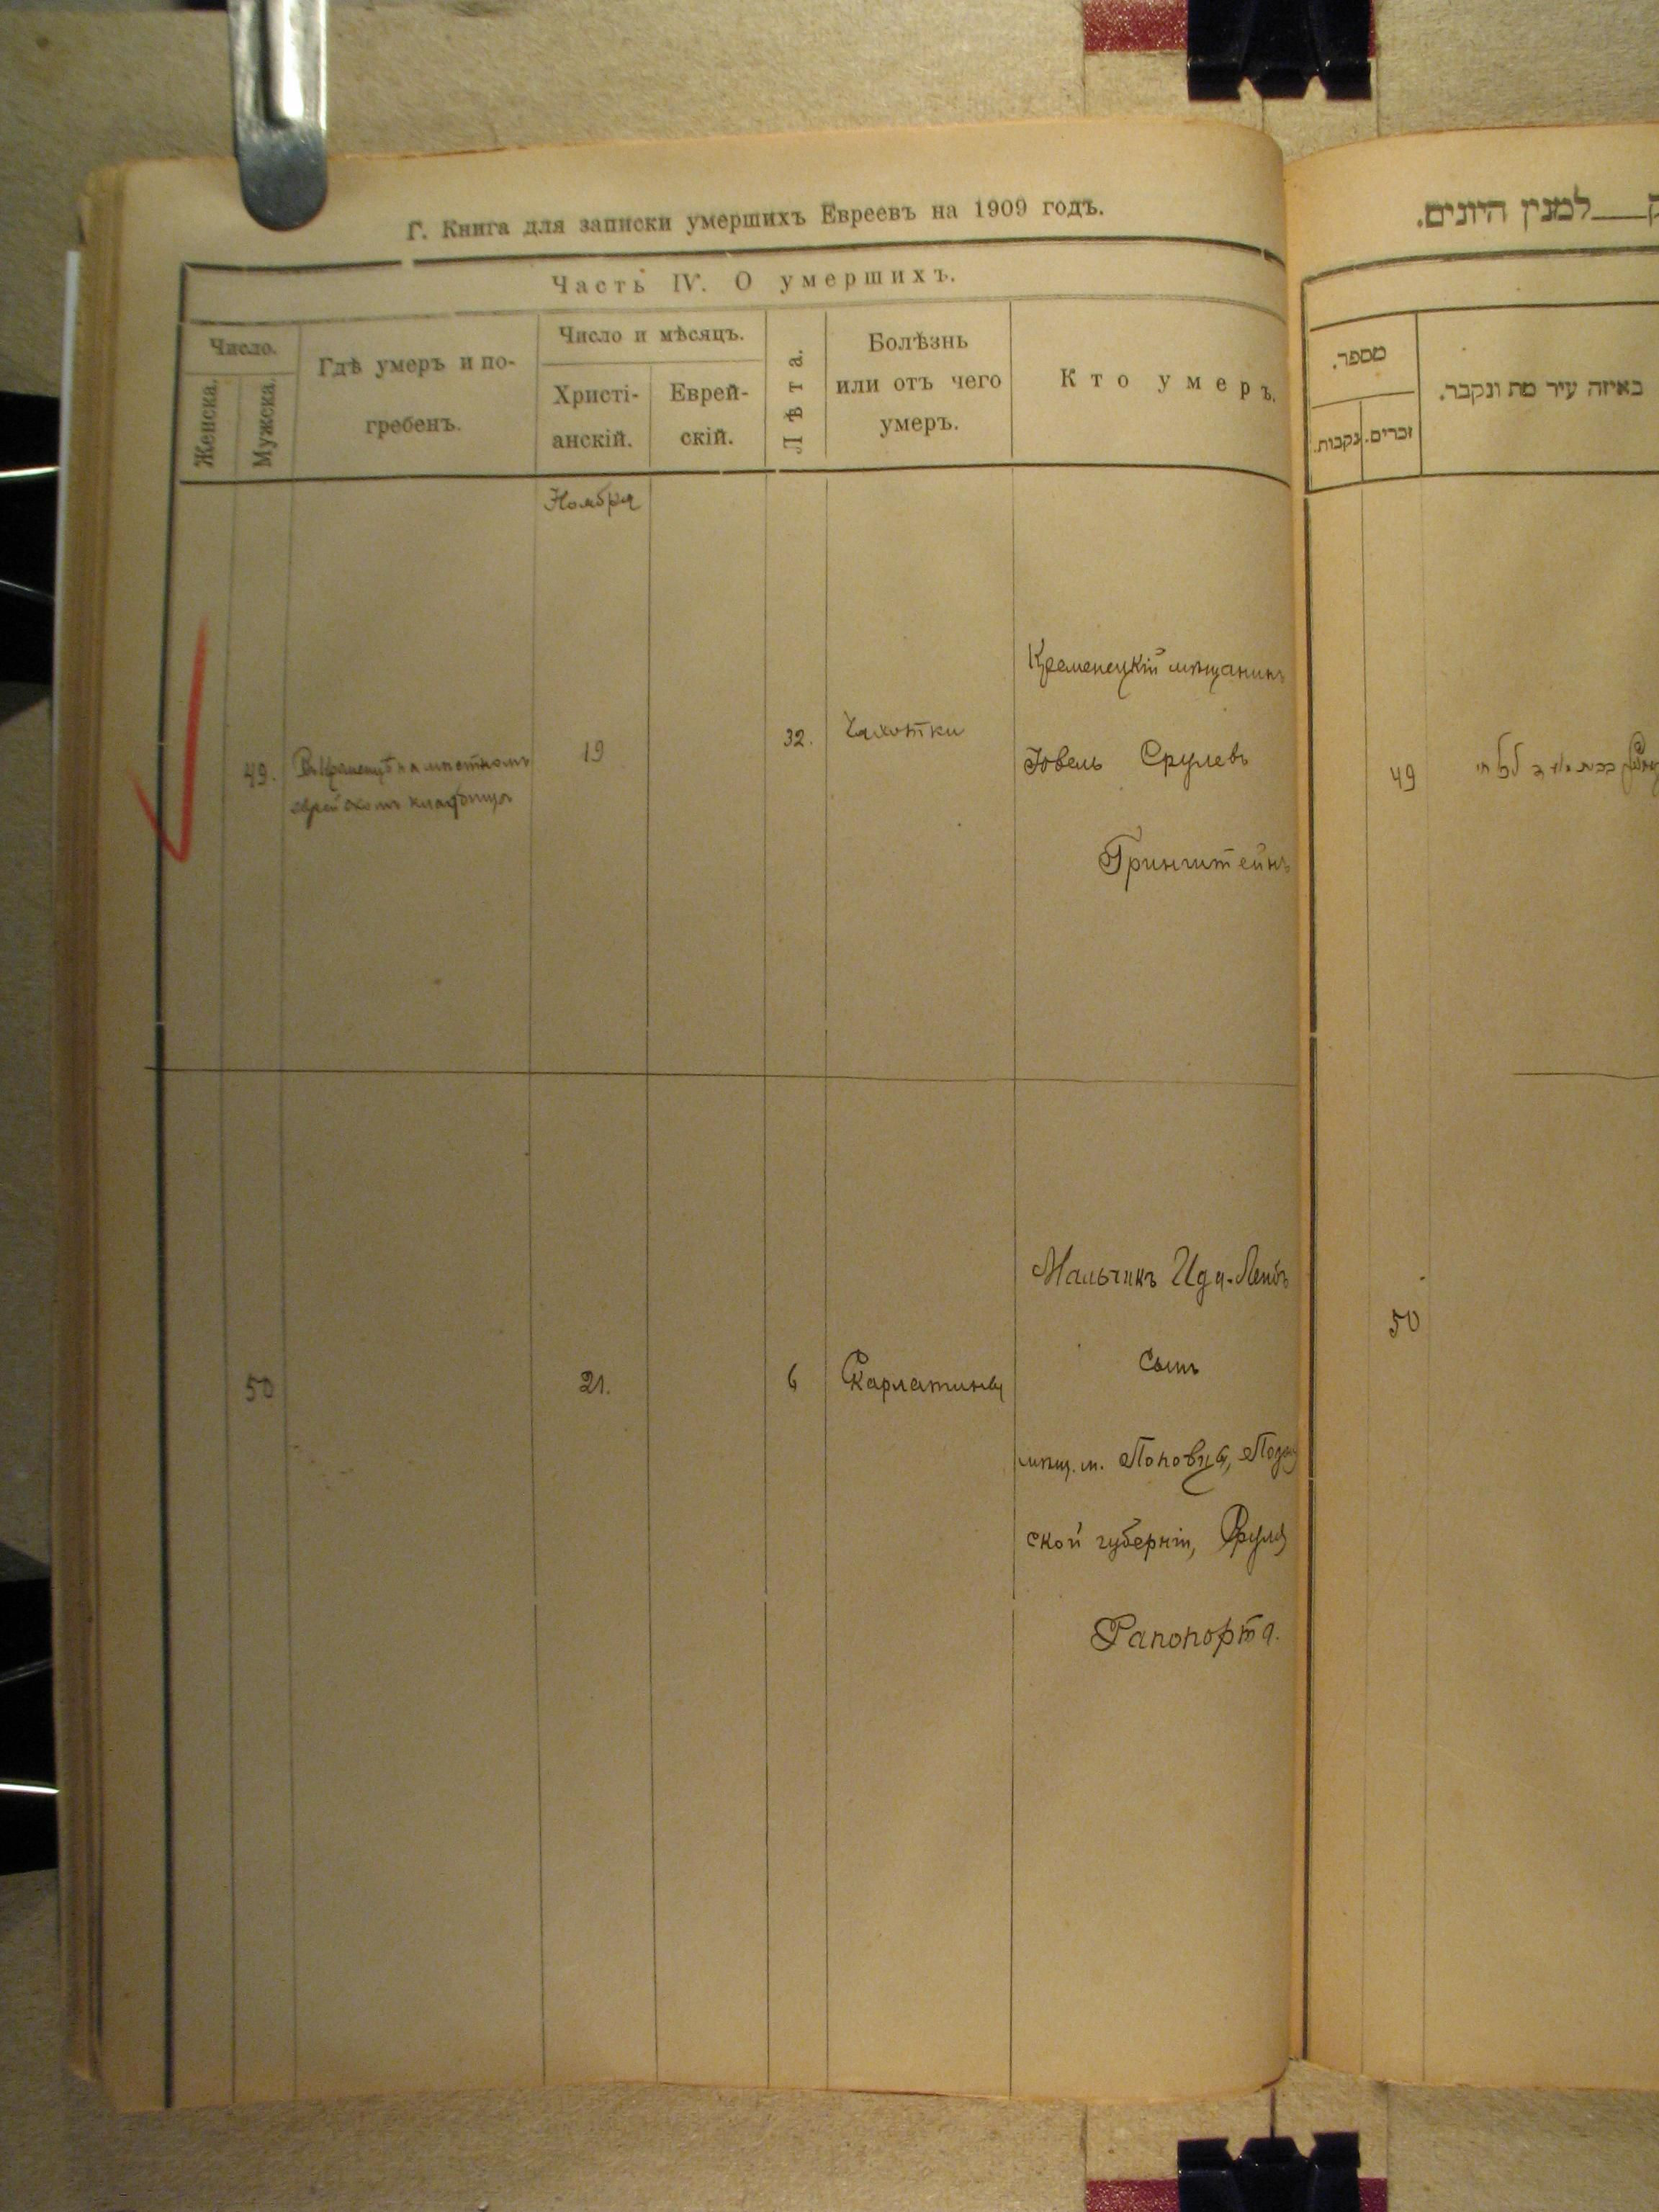 Г. Книга для записки умершихъ Евреевъ на 1909 годъ.
Часть IV. О умершихъ.
Число.
Женска.
Мужска.
Гдѣ умеръ и по-
гребенъ.
Число и мѣсяцъ.
Христі-
анскій.
Еврей-
скій.
Лѣта.
Болѣзнь
или отъ чего
умеръ.
Кто умеръ.
Ноября
49.
Въ Кременцѣ на мѣстномъ
еврейскомъ кладбищѣ
19
32.
Чахотки
Кременецкій мѣщанинъ
Іовель Срулевъ
Гринштейнъ
50
21.
6
Скарлатины
Мальчикъ Ида-Лейбъ
сынъ
мѣщ. м. Поповца, Подоль
ской губерніи, Сруля
Рапопорта.
למנין היונים.
מספר.
נקבות.
זכרים.
באיזה עיר מת ונקבר.
49
50